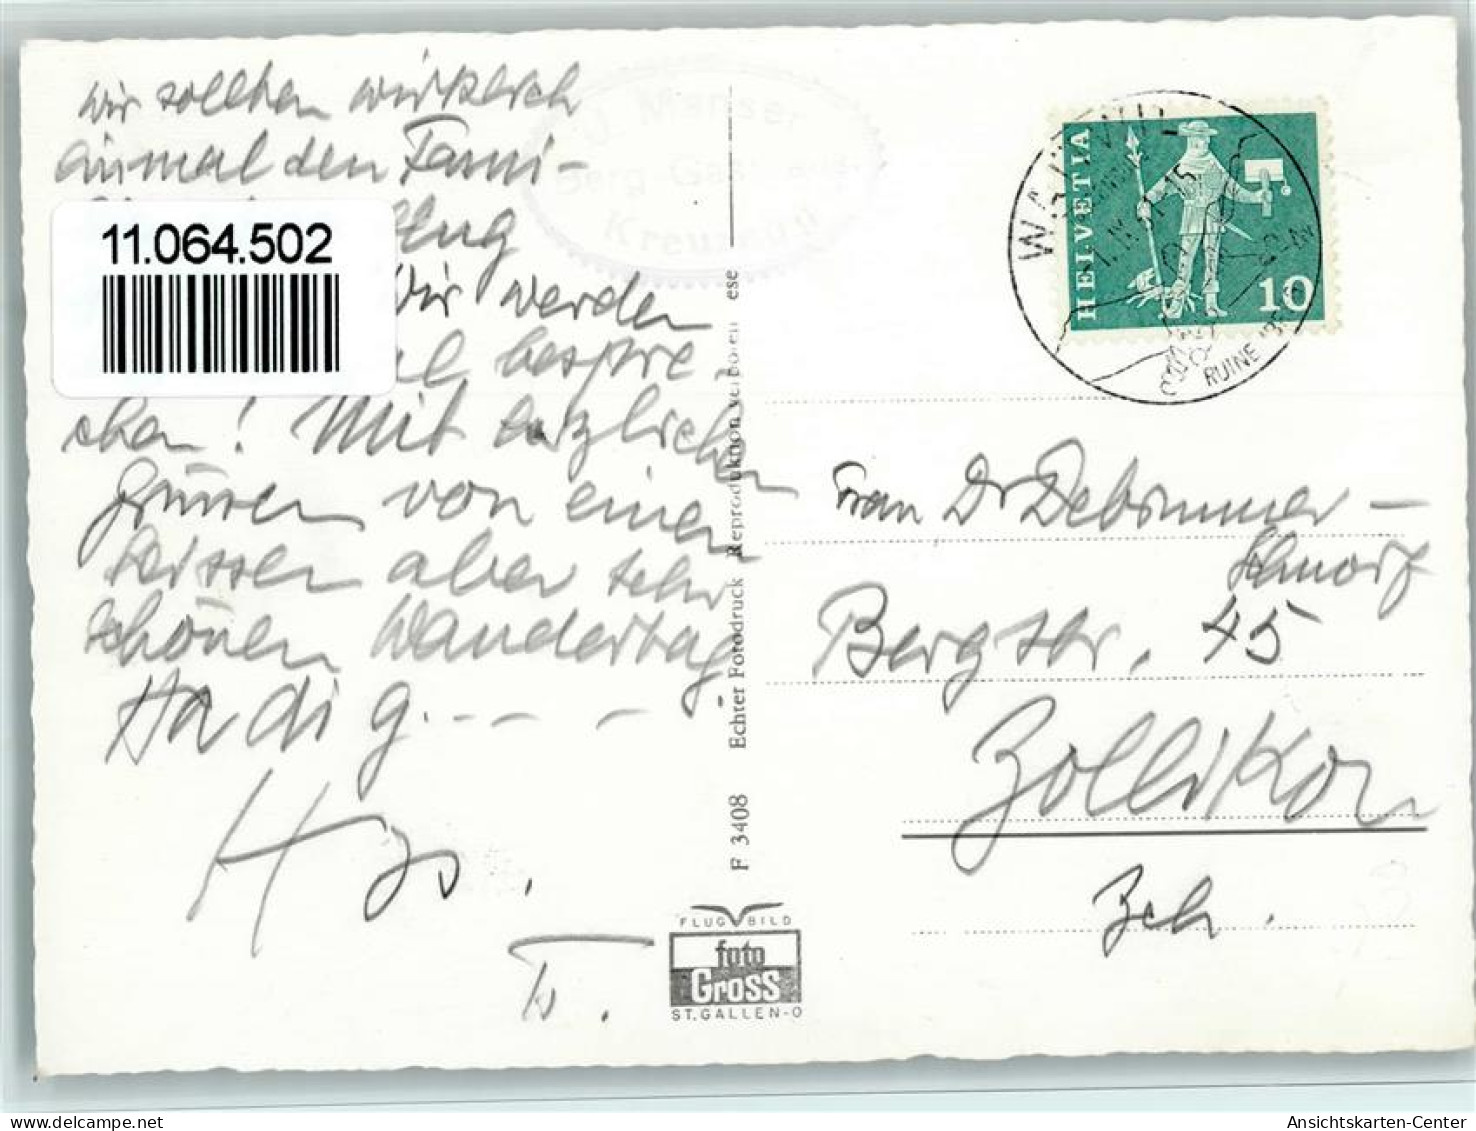 wir sollten wirklich
einmal den Fami-
11.064.502
Wir werden
bespre
chen! Mit herzlichen
Grüssen von einem
heissen aber sehr
schönen Wandertag
Hadi g. - - -
J. Manser
Berg-Gasthaus
Kreuzegg
Echter Fotodruck Reproduktion verboten
ese
F 3408
FLUG BILD
foto
Gross
ST. GALLEN-O
HELVETIA
10
WATTWIL
RUINE
Frau Dr Debrunner-
Schnorf
Bergstr. 45
Zollikon
Zch.
Ansichtskarten-Center